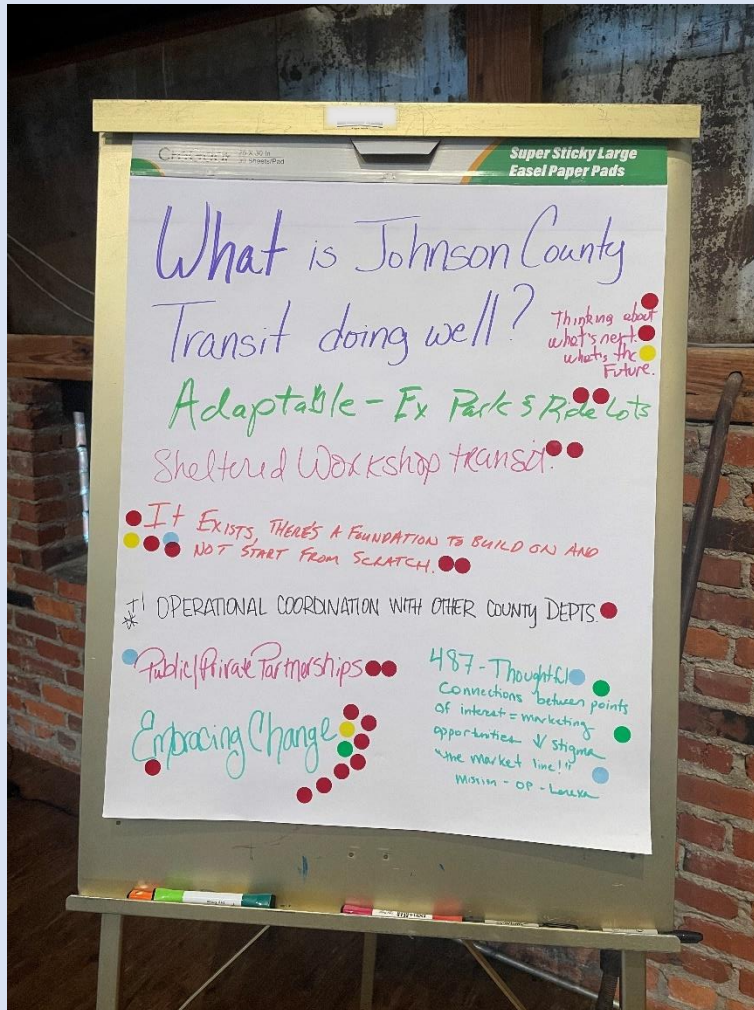 20 X 30 IN
30 Sheets/Pad
Super Sticky Large
Easel Paper Pads
What is Johnson County
Transit doing well?
Thinking about
what's next.
what's the
Future.
Adaptable - Ex Park & Ride Lots
Sheltered Workshop transit.
It EXISTS, THERE'S A FOUNDATION TO BUILD ON AND
NOT START FROM SCRATCH.
OPERATIONAL COORDINATION WITH OTHER COUNTY DEPTS.
Public/Private Partnerships
Embracing Change
487 - Thoughtful
Connections between points
of interest = marketing
opportunities ↓ stigma
"the market line!"
Mission - OP - Lenexa